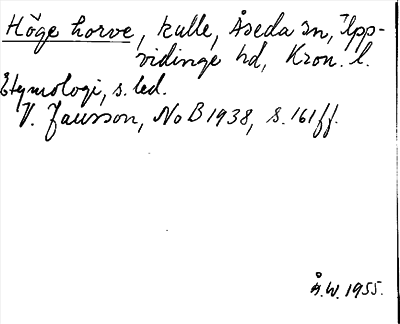 Höge horve, kulle, Åseda sn, Upp-
vidinge hd, Kron. l.
Etymologi, s. led.
V. Jansson, NoB 1938, s. 161 ff.
Å.W. 1955.